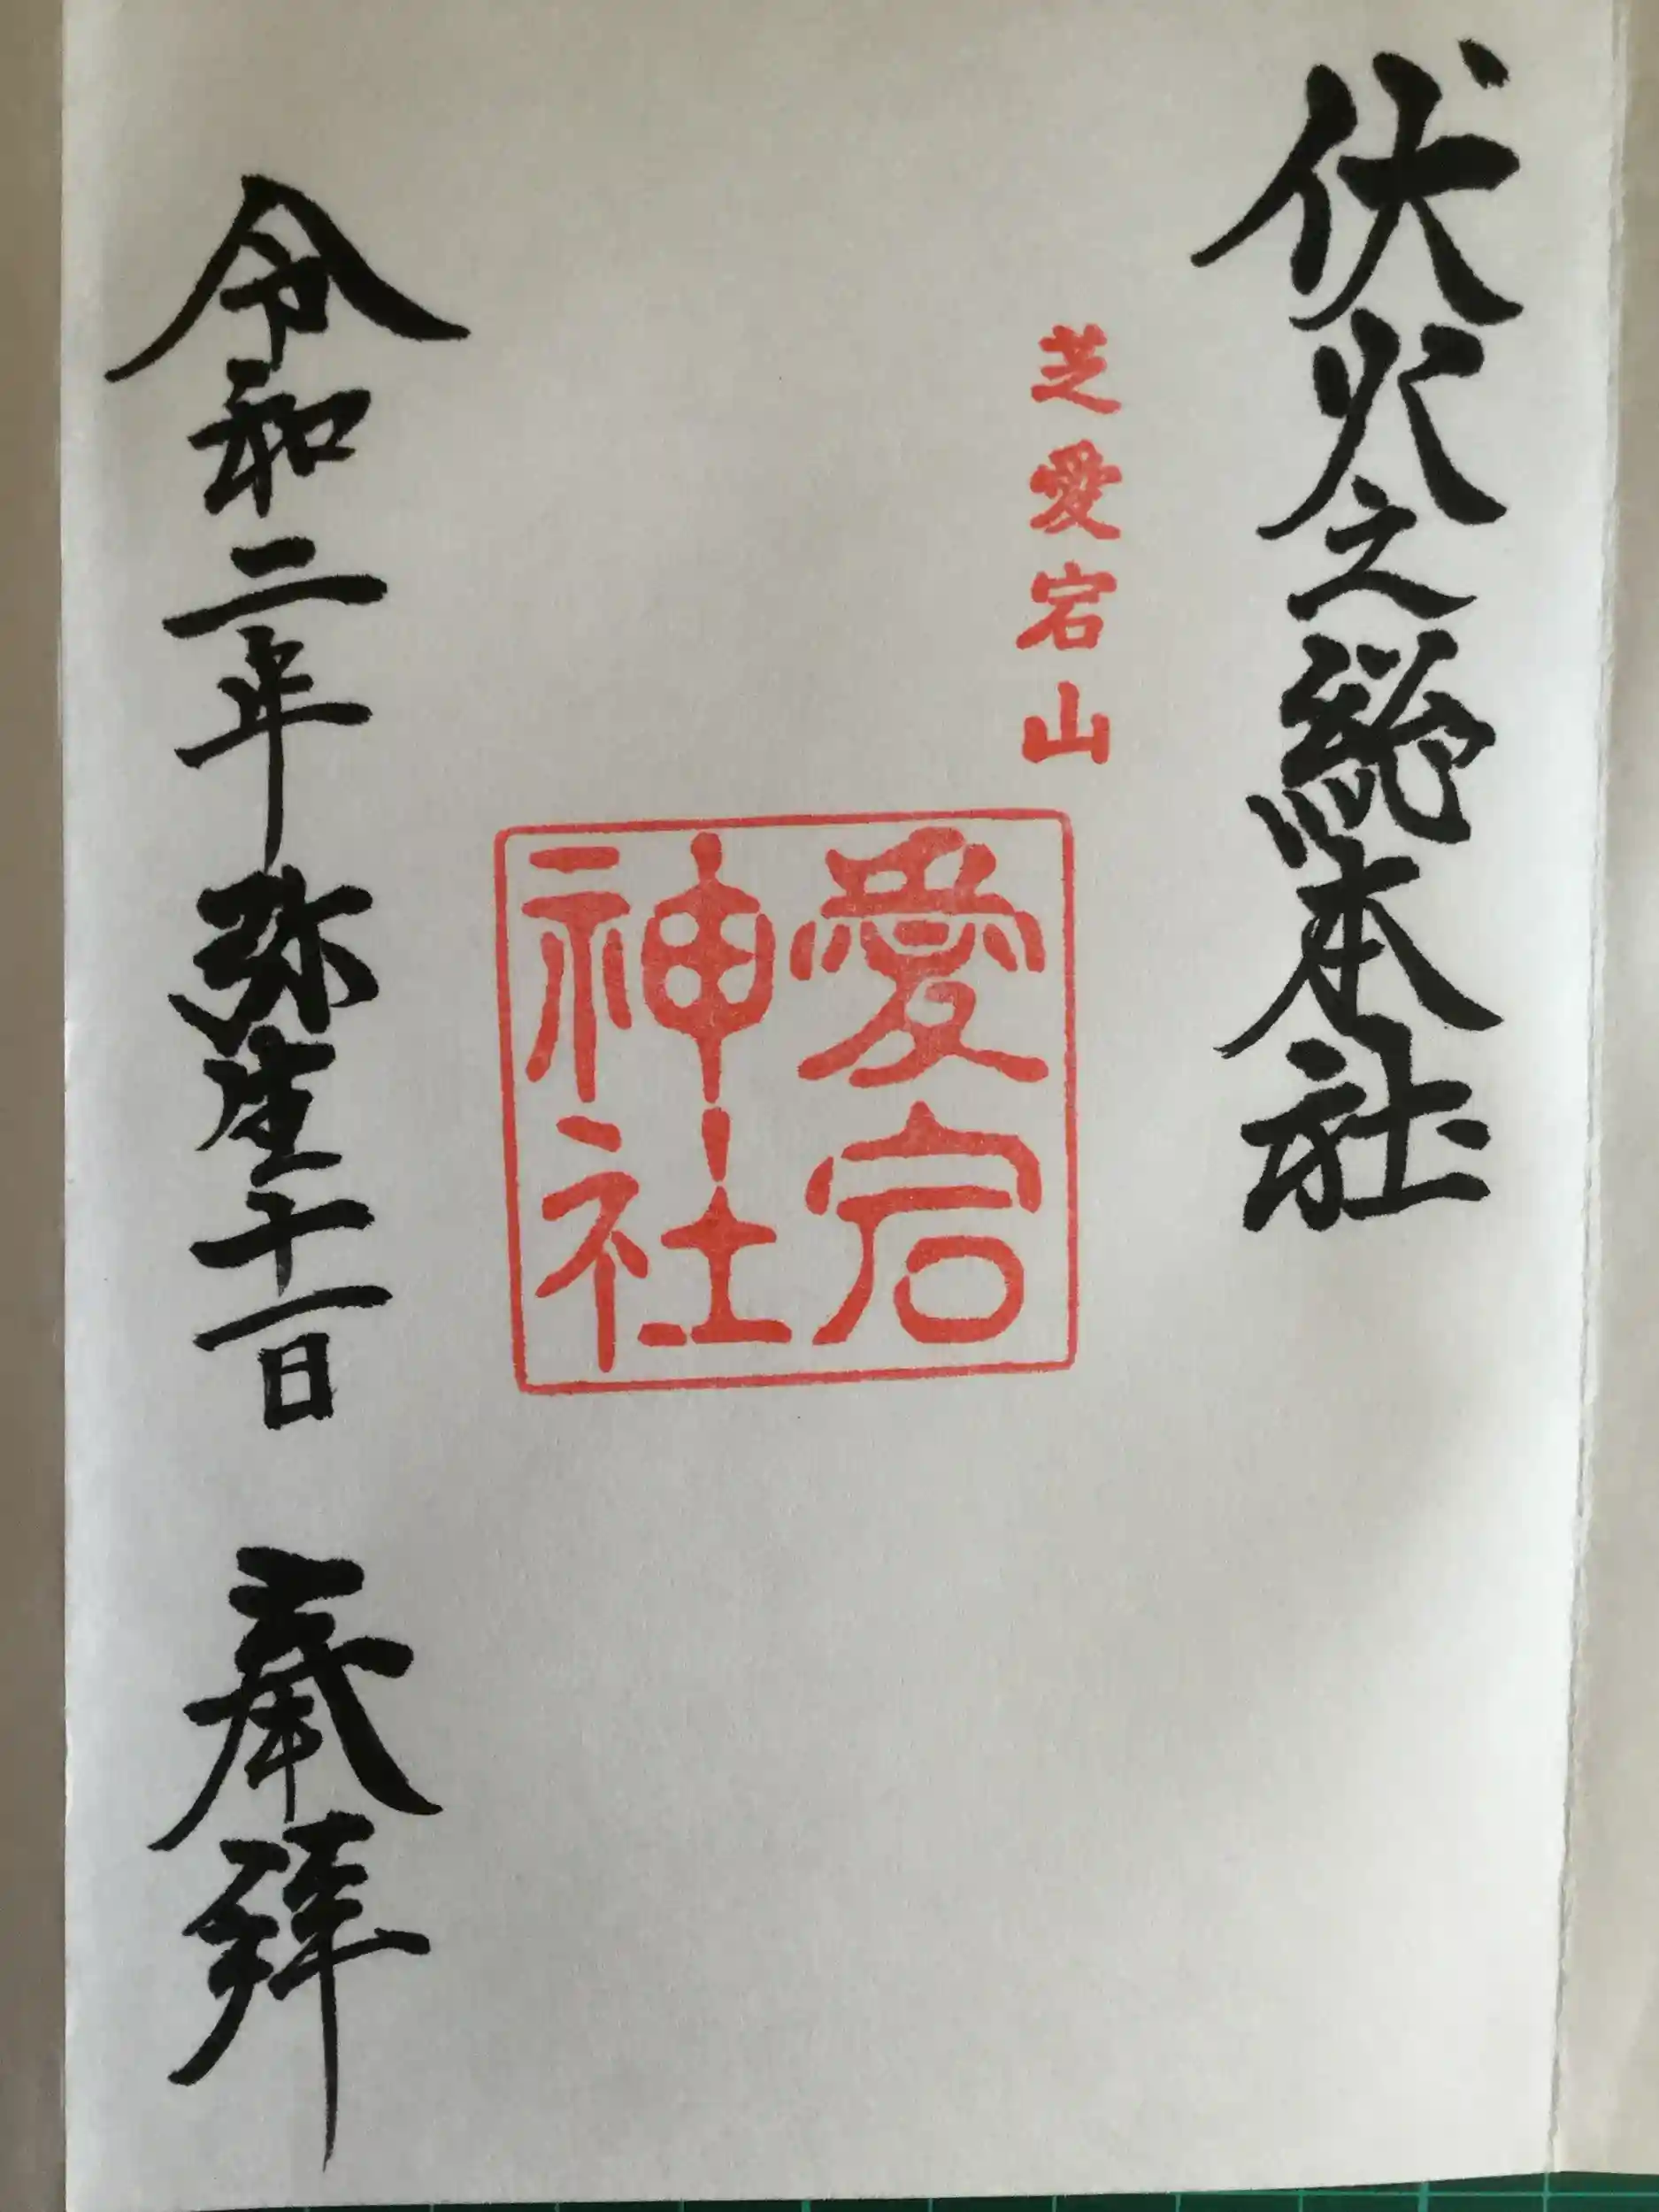 伏火之総本社
芝愛宕山
愛宕
神社
令和二年弥生十一日 奉拝